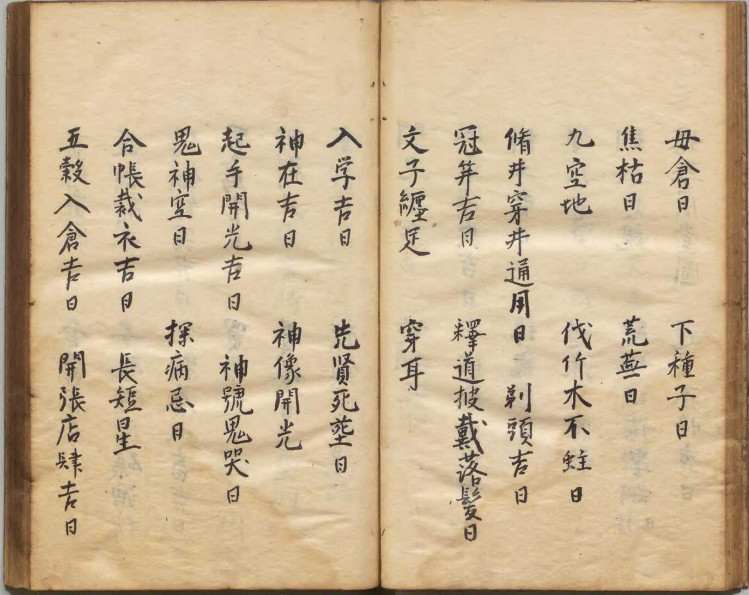 母倉日 下種子日
焦枯日 荒蕪日
九空地 伐竹木不蛀日
脩井穿井通用日 剃頭吉日
冠笄吉日 釋道披戴落髮日
文子纏足 穿耳
入学吉日 先賢死塟日
神在吉日 神像開光
起手開光吉日 神號鬼哭日
鬼神空日 探病忌日
合帳裁衣吉日 長短星
五穀入倉吉日 開張店肆吉日